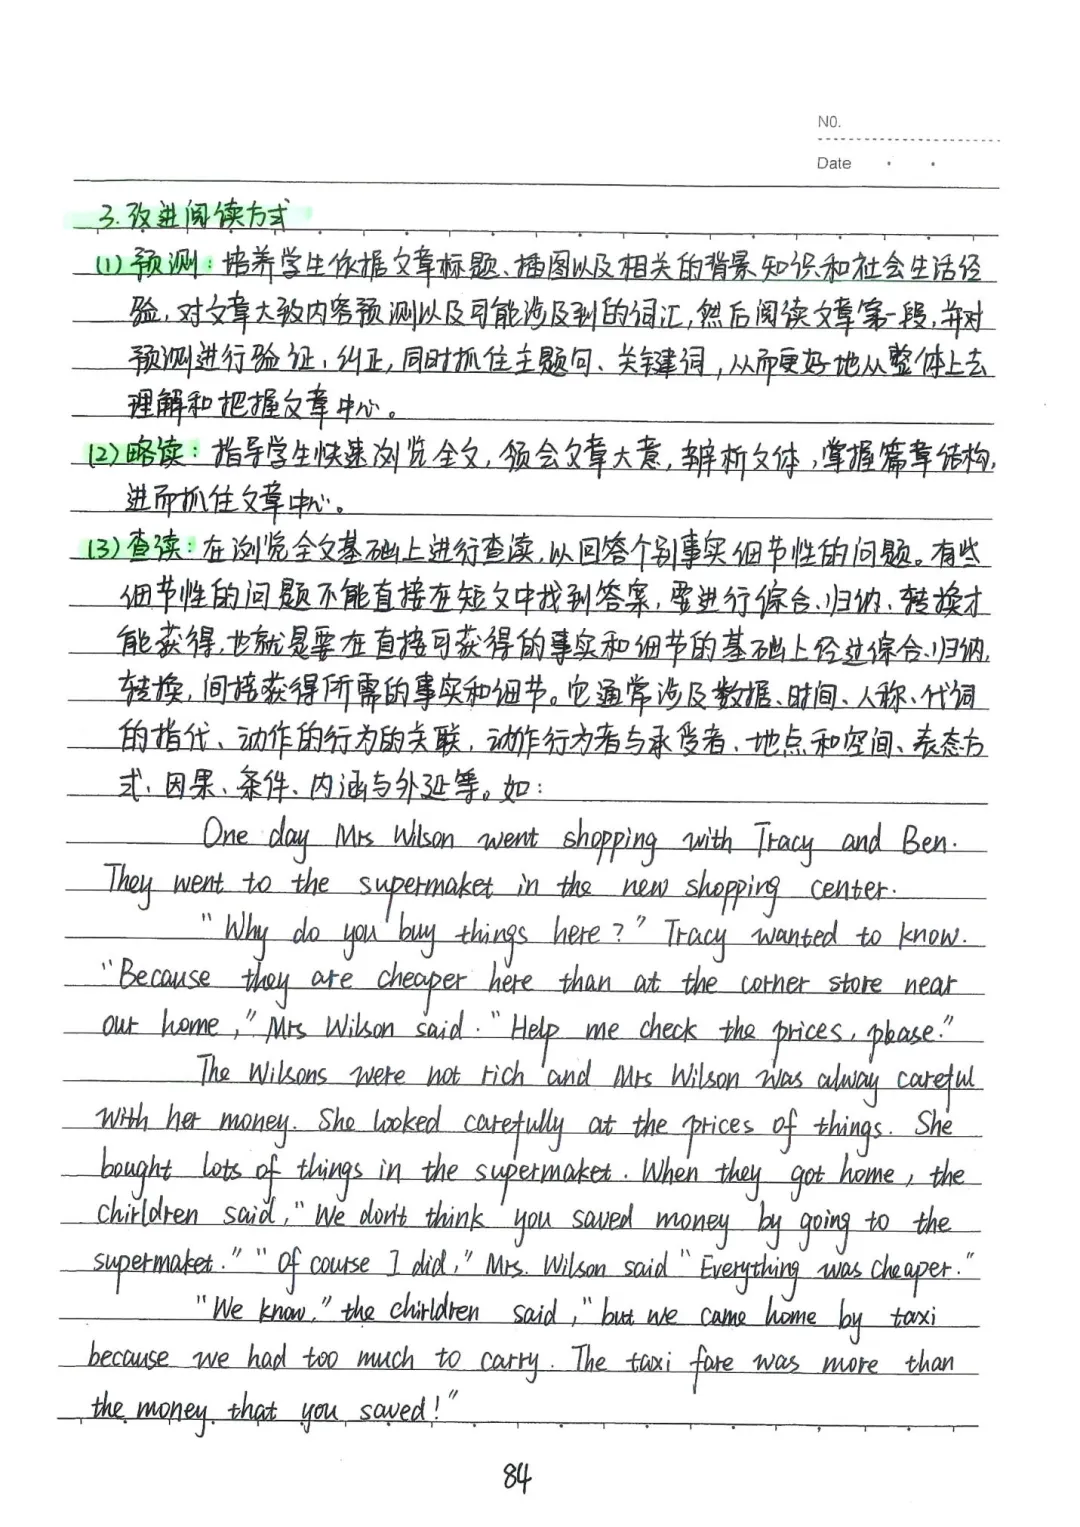 NO.
Date
3.改进阅读方式
(1)预测：培养学生依据文章标题、插图以及相关的背景知识和社会生活经
验,对文章大致内容预测以及可能涉及到的词汇,然后阅读文章第一段,并对
预测进行验证,纠正,同时抓住主题句、关键词,从而更好地从整体上去
理解和把握文章中心。
(2)略读：指导学生快速浏览全文,领会文章大意,辨析文体,掌握篇章结构,
进而抓住文章中心。
(3)查读：在浏览全文基础上进行查读,以回答个别事实细节性的问题。有些
细节性的问题不能直接在短文中找到答案,要进行综合、归纳、转换才
能获得,也就是要在直接可获得的事实和细节的基础上经过综合、归纳,
转换,间接获得所需的事实和细节。它通常涉及数据、时间、人称、代词
的指代、动作的行为的关联,动作行为者与承受者、地点和空间、表态方
式、因果、条件、内涵与外延等。如：
One day Mrs Wilson went shopping with Tracy and Ben.
They went to the supermaket in the new shopping center.
"Why do you buy things here?" Tracy wanted to know.
"Because they are cheaper here than at the corner store near
our home," Mrs Wilson said. "Help me check the prices, please."
The Wilsons were not rich and Mrs Wilson was alway careful
with her money. She looked carefully at the prices of things. She
bought lots of things in the supermaket. When they got home, the
chirldren said, "We don't think you saved money by going to the
supermaket." "Of course I did," Mrs. Wilson said "Everything was cheaper."
"We know," the chirldren said, "but we came home by taxi
because we had too much to carry. The taxi fare was more than
the money that you saved!"
84